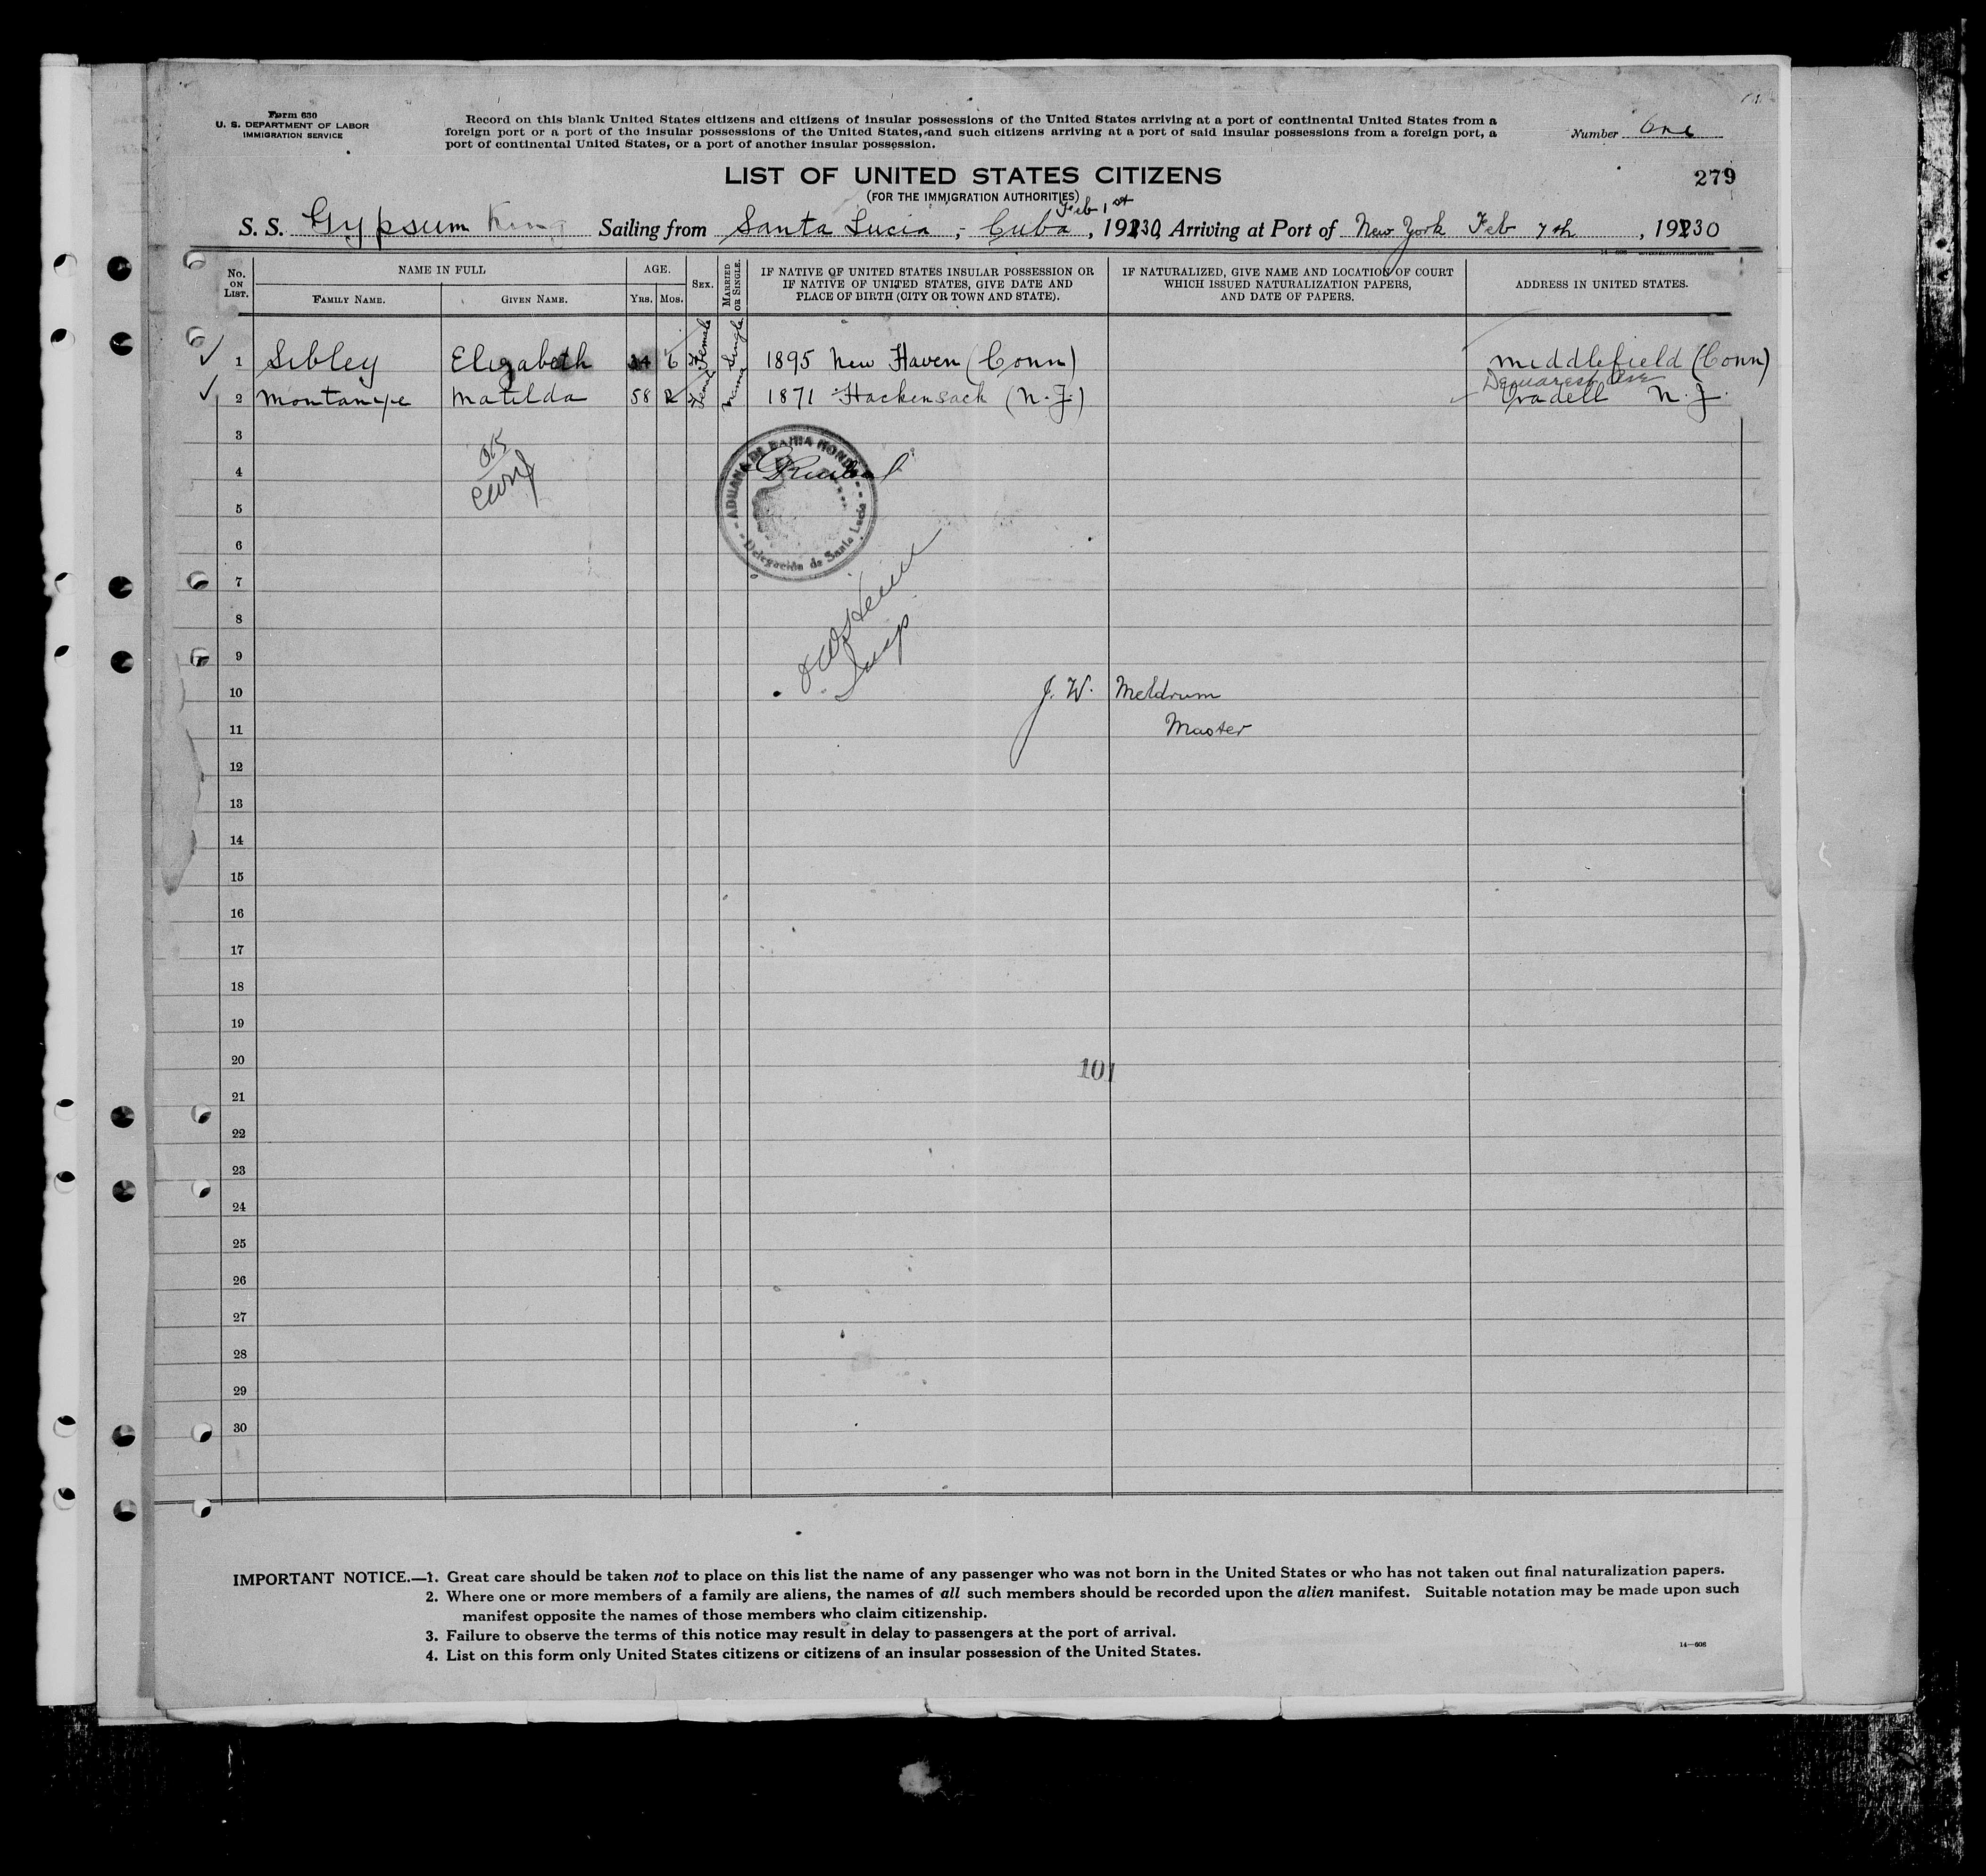 Form 630
U. S. DEPARTMENT OF LABOR
IMMIGRATION SERVICE
Record on this blank United States citizens and citizens of insular possessions of the United States arriving at a port of continental United States from a
foreign port or a port of the insular possessions of the United States, and such citizens arriving at a port of said insular possessions from a foreign port, a
port of continental United States, or a port of another insular possession.
Number One
LIST OF UNITED STATES CITIZENS
279
(FOR THE IMMIGRATION AUTHORITIES)
Feb 1st
S. S. Gypsum King Sailing from Santa Lucia, Cuba, 1930, Arriving at Port of New York Feb 7th, 1930
No. ON LIST.
NAME IN FULL
FAMILY NAME.
GIVEN NAME.
AGE.
YRS.
MOS.
SEX.
MARRIED OR SINGLE.
IF NATIVE OF UNITED STATES INSULAR POSSESSION OR
IF NATIVE OF UNITED STATES, GIVE DATE AND
PLACE OF BIRTH (CITY OR TOWN AND STATE).
IF NATURALIZED, GIVE NAME AND LOCATION OF COURT
WHICH ISSUED NATURALIZATION PAPERS,
AND DATE OF PAPERS.
ADDRESS IN UNITED STATES.
1 Sibley Elizabeth 34 6 Female Single 1895 New Haven (Conn) Middlefield (Conn)
Demarest Ave
2 Montanye Matilda 58 2 Female 1871 Hackensack (N.J.) Oradell N.J.
3
4
5
ADUANA DE BAHIA HONDA
Delegación de Santa Lucia
6
7
8
9
Insp
10 J. W. Meldrum
11 Master
12
13
14
15
16
17
18
19
20
101
21
22
23
24
25
26
27
28
29
30
IMPORTANT NOTICE.—1. Great care should be taken not to place on this list the name of any passenger who was not born in the United States or who has not taken out final naturalization papers.
2. Where one or more members of a family are aliens, the names of all such members should be recorded upon the alien manifest. Suitable notation may be made upon such
manifest opposite the names of those members who claim citizenship.
3. Failure to observe the terms of this notice may result in delay to passengers at the port of arrival.
4. List on this form only United States citizens or citizens of an insular possession of the United States.
14—608